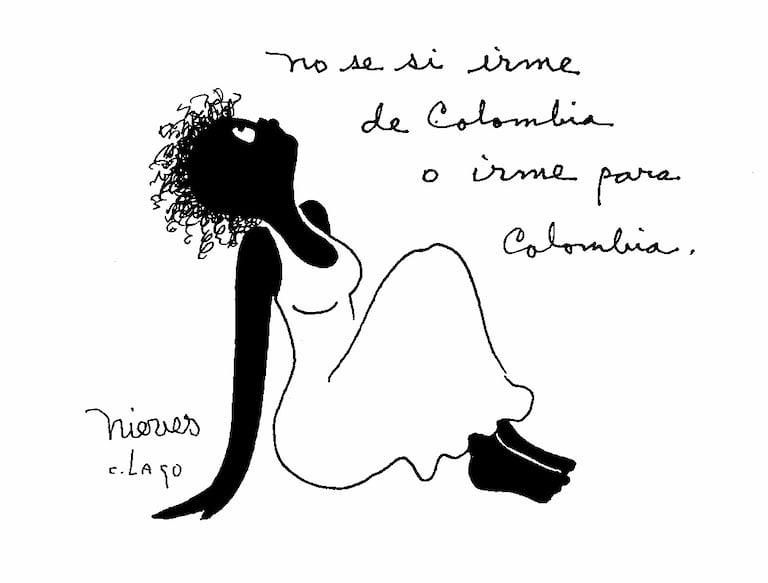 no se si irme
de Colombia
o irme para
Colombia.
Nieves
c. Lago